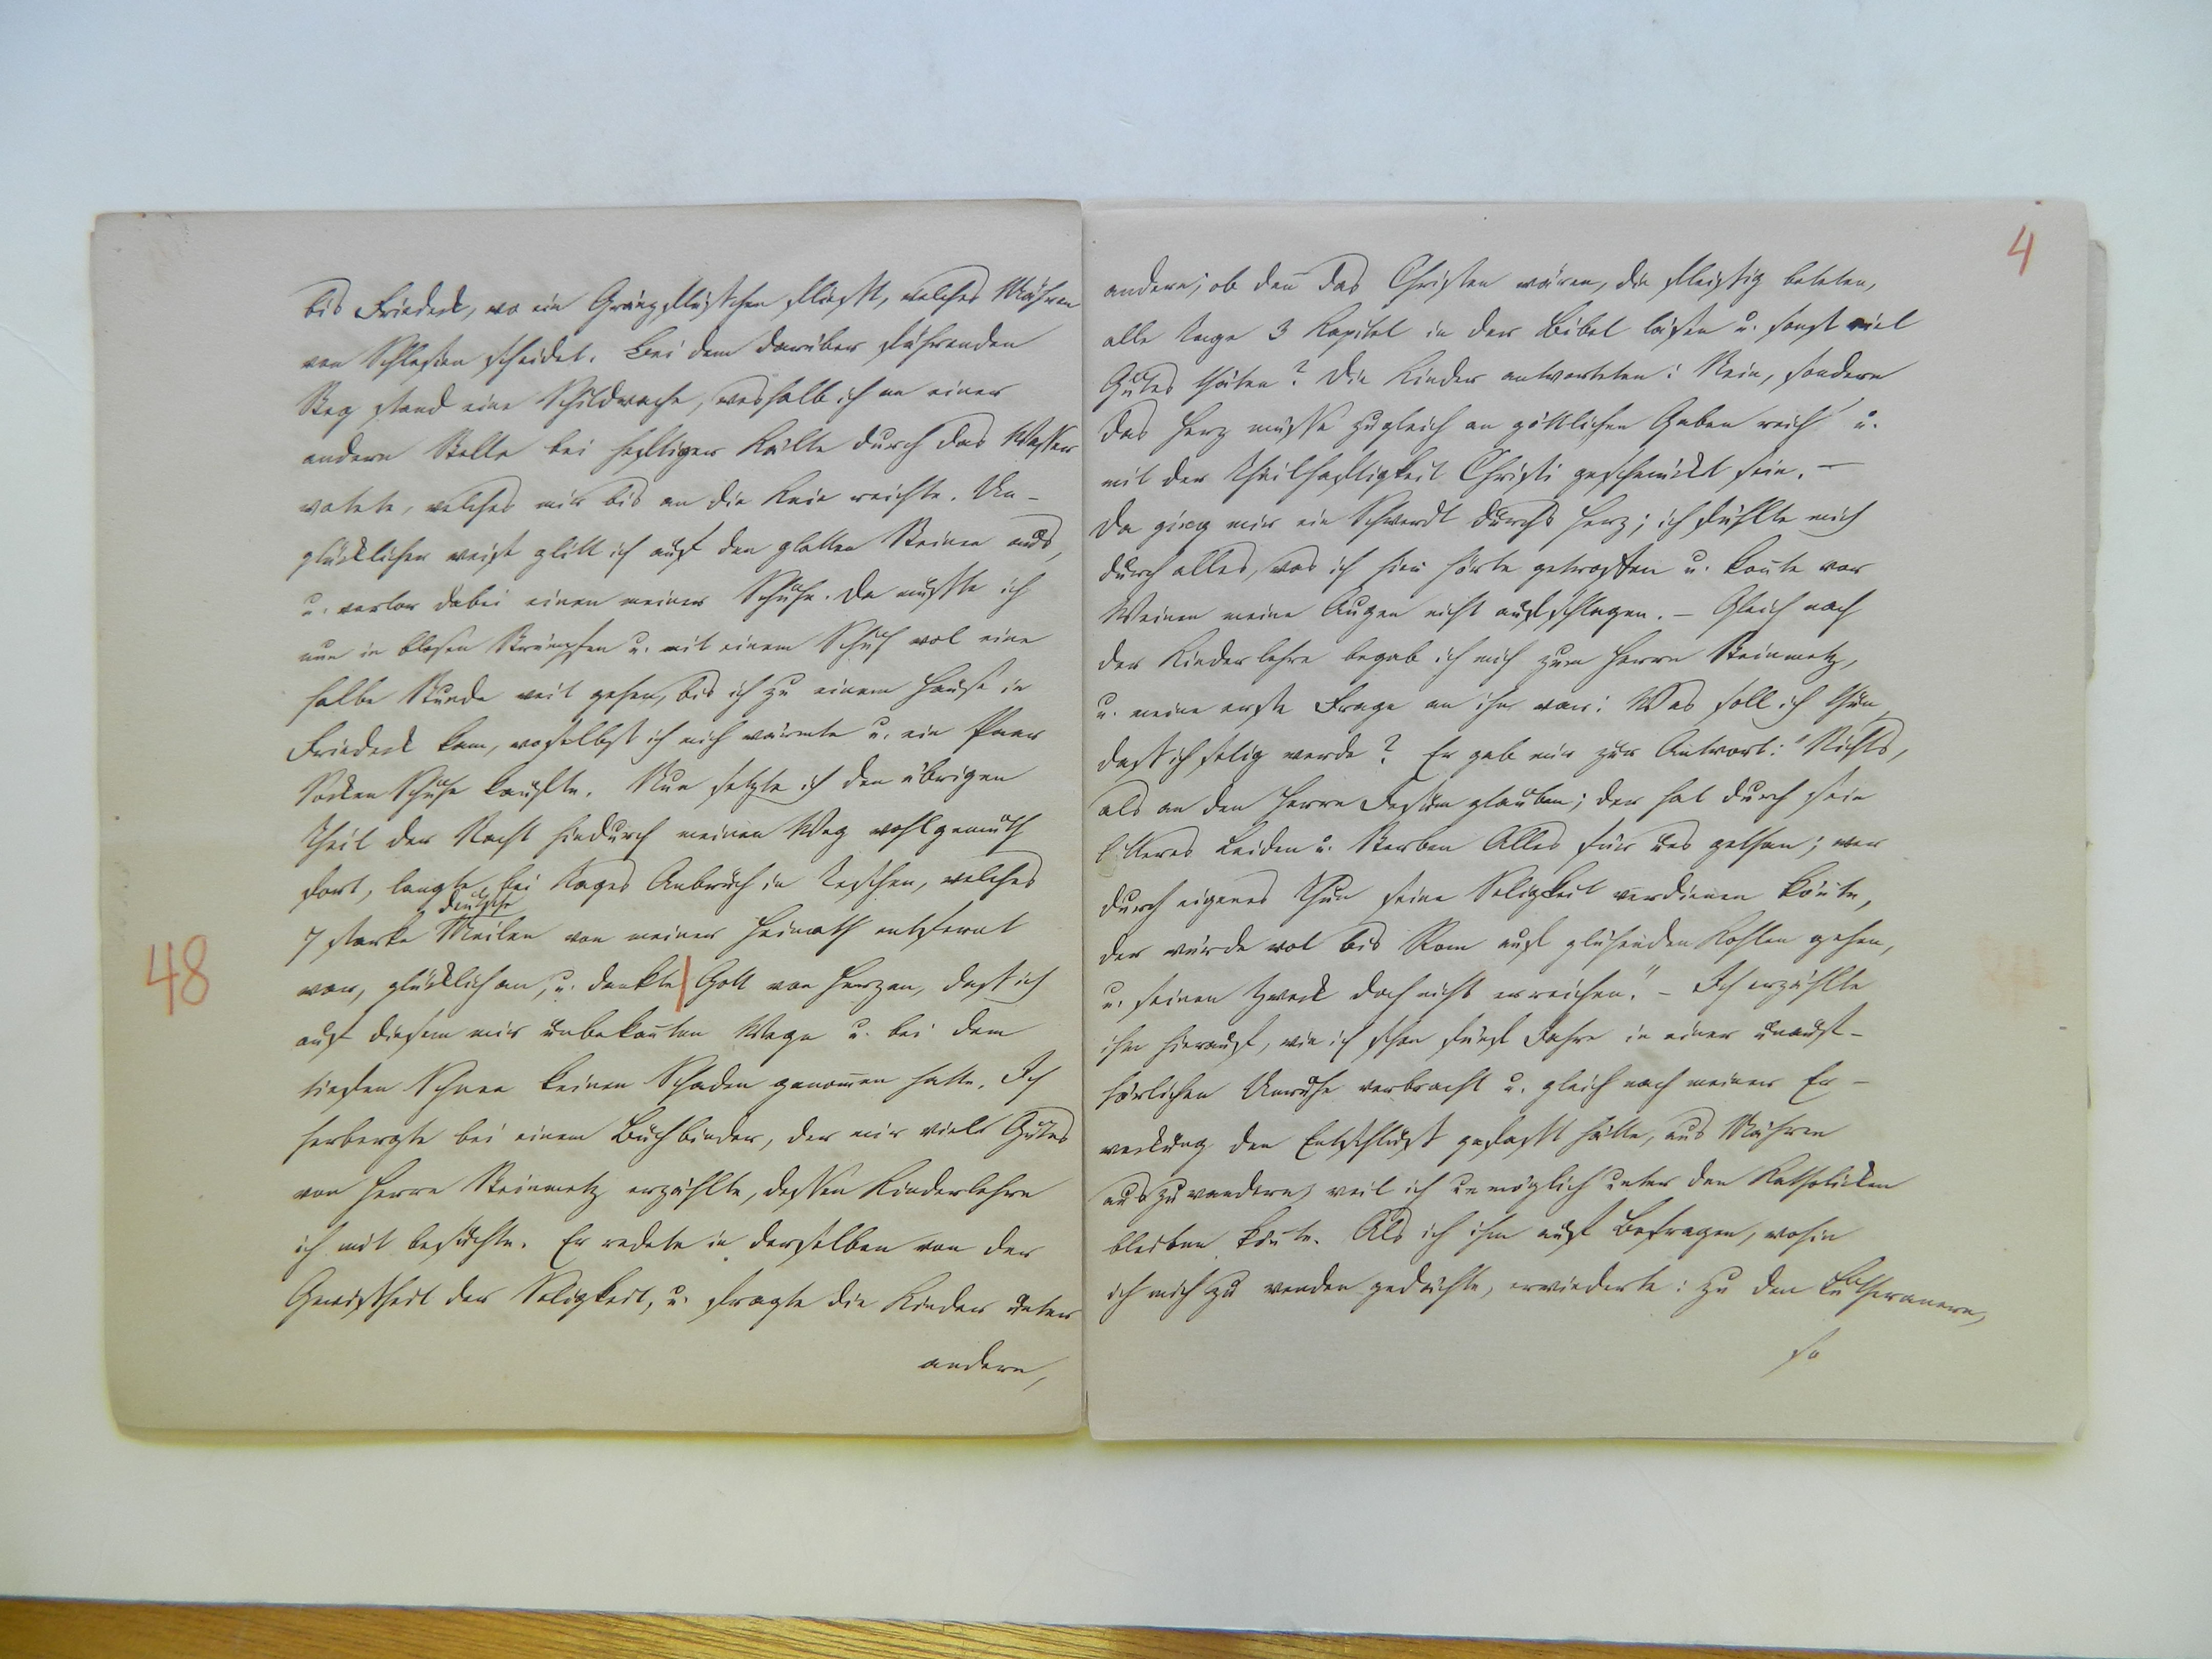 bis Friedeck, wo ein Gränzflüßchen fließt, welches Mähren
von Schlesien scheidet. Bei dem darüber führenden
Steg stand eine Schildwache, weshalb ich an einer
andern Stelle bei heftiger Kälte durch das Wasser
watete, welches mir bis an die Knie reichte. Un-
glücklicher weise glitt ich auf den glatten Steinen aus,
u. verlor dabei einen meiner Schuhe. Da mußte ich
nun in bloßen Strümpfen u. mit einem Schuh wol eine
halbe Stunde weit gehen, bis ich zu einem Hause in
Friedeck kam, woselbst ich mich wärmte u. ein Paar
Socken Schuhe kaufte. Nun setzte ich den übrigen
Theil der Nacht hindurch meinen Weg wohlgemuth
fort, langte bei Tages Anbruch in Teschen, welches
deutsche
7 starke Meilen von meiner Heimath entfernt
48
war, glücklich an, u. dankte Gott von Herzen, daß ich
auf diesem mir unbekan̄ten Wege u. bei dem
tiefen Schnee keinen Schaden genom̄en hatte. Ich
herbergte bei einem Buchbinder, der mir viel Gutes
von Herrn Steinmetz erzählte, dessen Kinderlehre
ich mit besuchte. Er redete in derselben von der
Gewißheit der Seligkeit, u. fragte die Kinder unter
andern,
4
andern, ob den̄ das Christen wären, die fleißig beteten,
alle Tage 3 Kapitel in der Bibel läsen u. sonst viel
Gutes thäten? Die Kinder antworteten: Nein, sondern
das Herz müsse zugleich an göttlichen Gaben reich u.
mit der Theilhaftigkeit Christi geschmückt sein. —
Da ging mir ein Schwerdt durchs Herz; ich fühlte mich
durch alles, was ich hier hörte getroffen u. kon̄te vor
Weinen meine Augen nicht aufschlagen. — Gleich nach
der Kinderlehre begab ich mich zum Herrn Steinmetz,
u. meine erste Frage an ihn war: Was soll ich thun,
daß ich selig werde? Er gab mir zur Antwort: "Nichts,
als an den Herrn Jesum glauben; der hat durch sein
bitteres Leiden u. Sterben Alles für uns gethan; wer
durch eigenes Thun seine Seligkeit verdienen kön̄te,
der würde wol bis Rom auf glühenden Kohlen gehen,
u. seinen Zweck doch nicht erreichen." — Ich erzählte
ihm hierauf, wie ich schon fünf Jahre in einer unauf-
hörlichen Unruhe verbracht u. gleich nach meiner Er-
weckung den Entschluß gefaßt hätte, aus Mähren
auszuwandern, weil ich unmöglich unter den Katholicken
bleiben kön̄te. Als ich ihm auf Befragen, wohin
ich mich zu wenden gedächte, erwiederte: zu den Lutheranern,
so